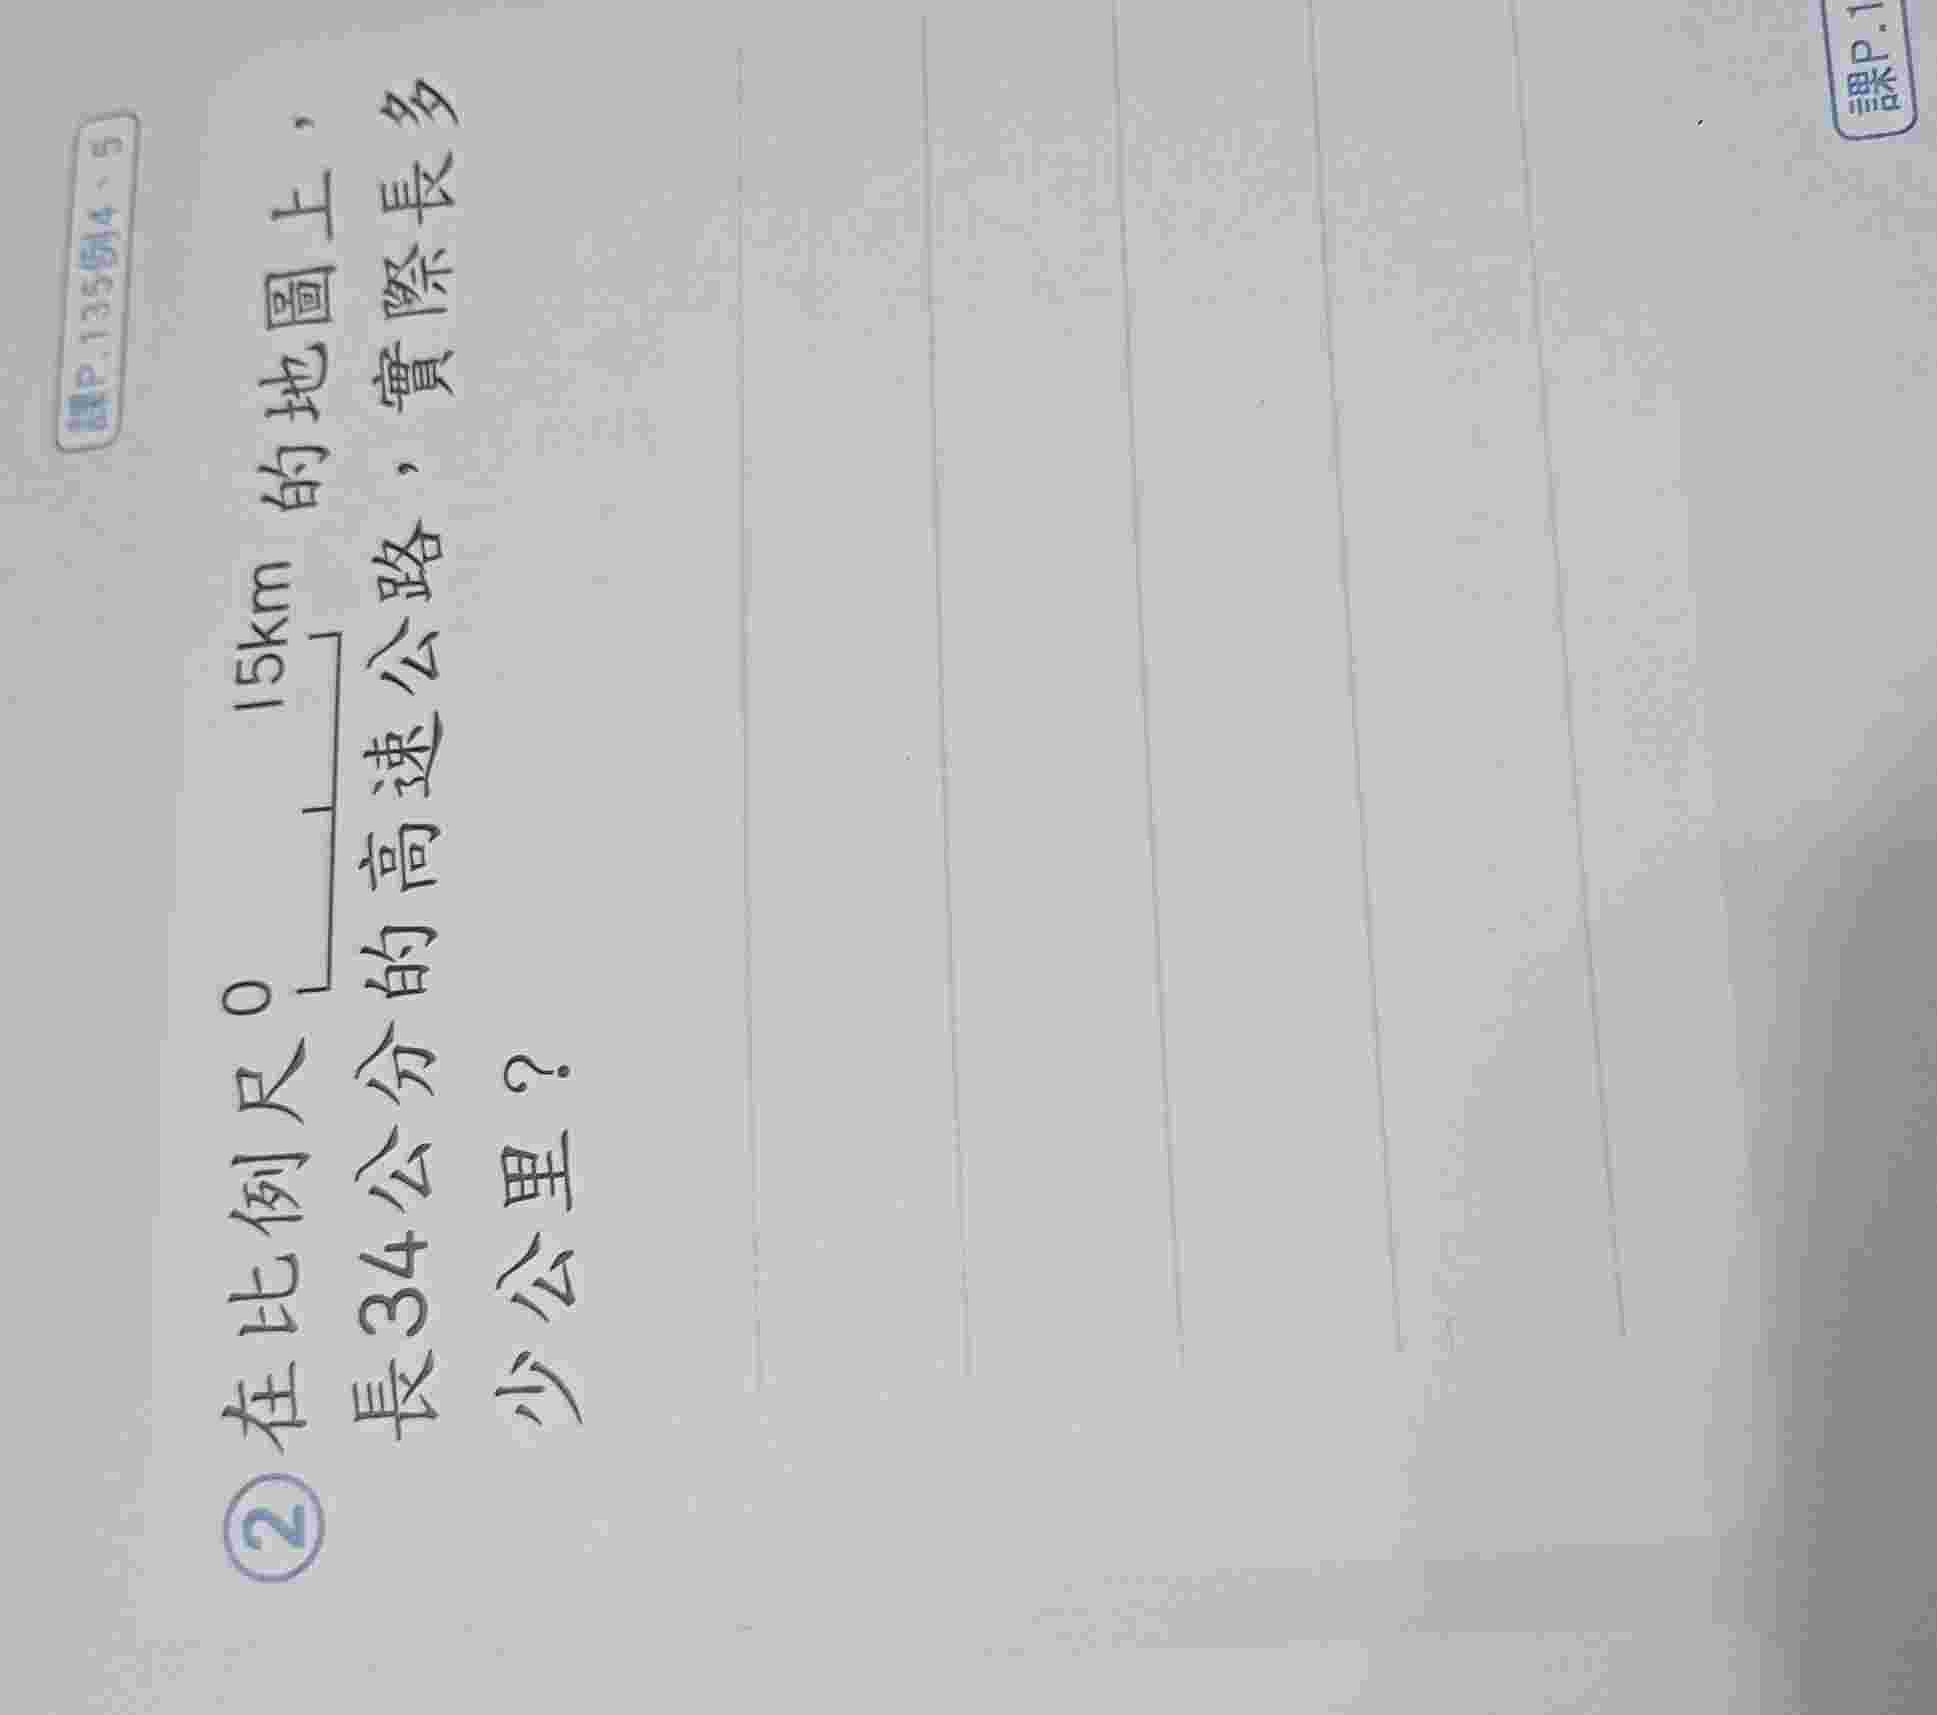 課P.135例4、5
②在比例尺 0 15km 的地圖上，
長34公分的高速公路，實際長多
少公里？
課P.1